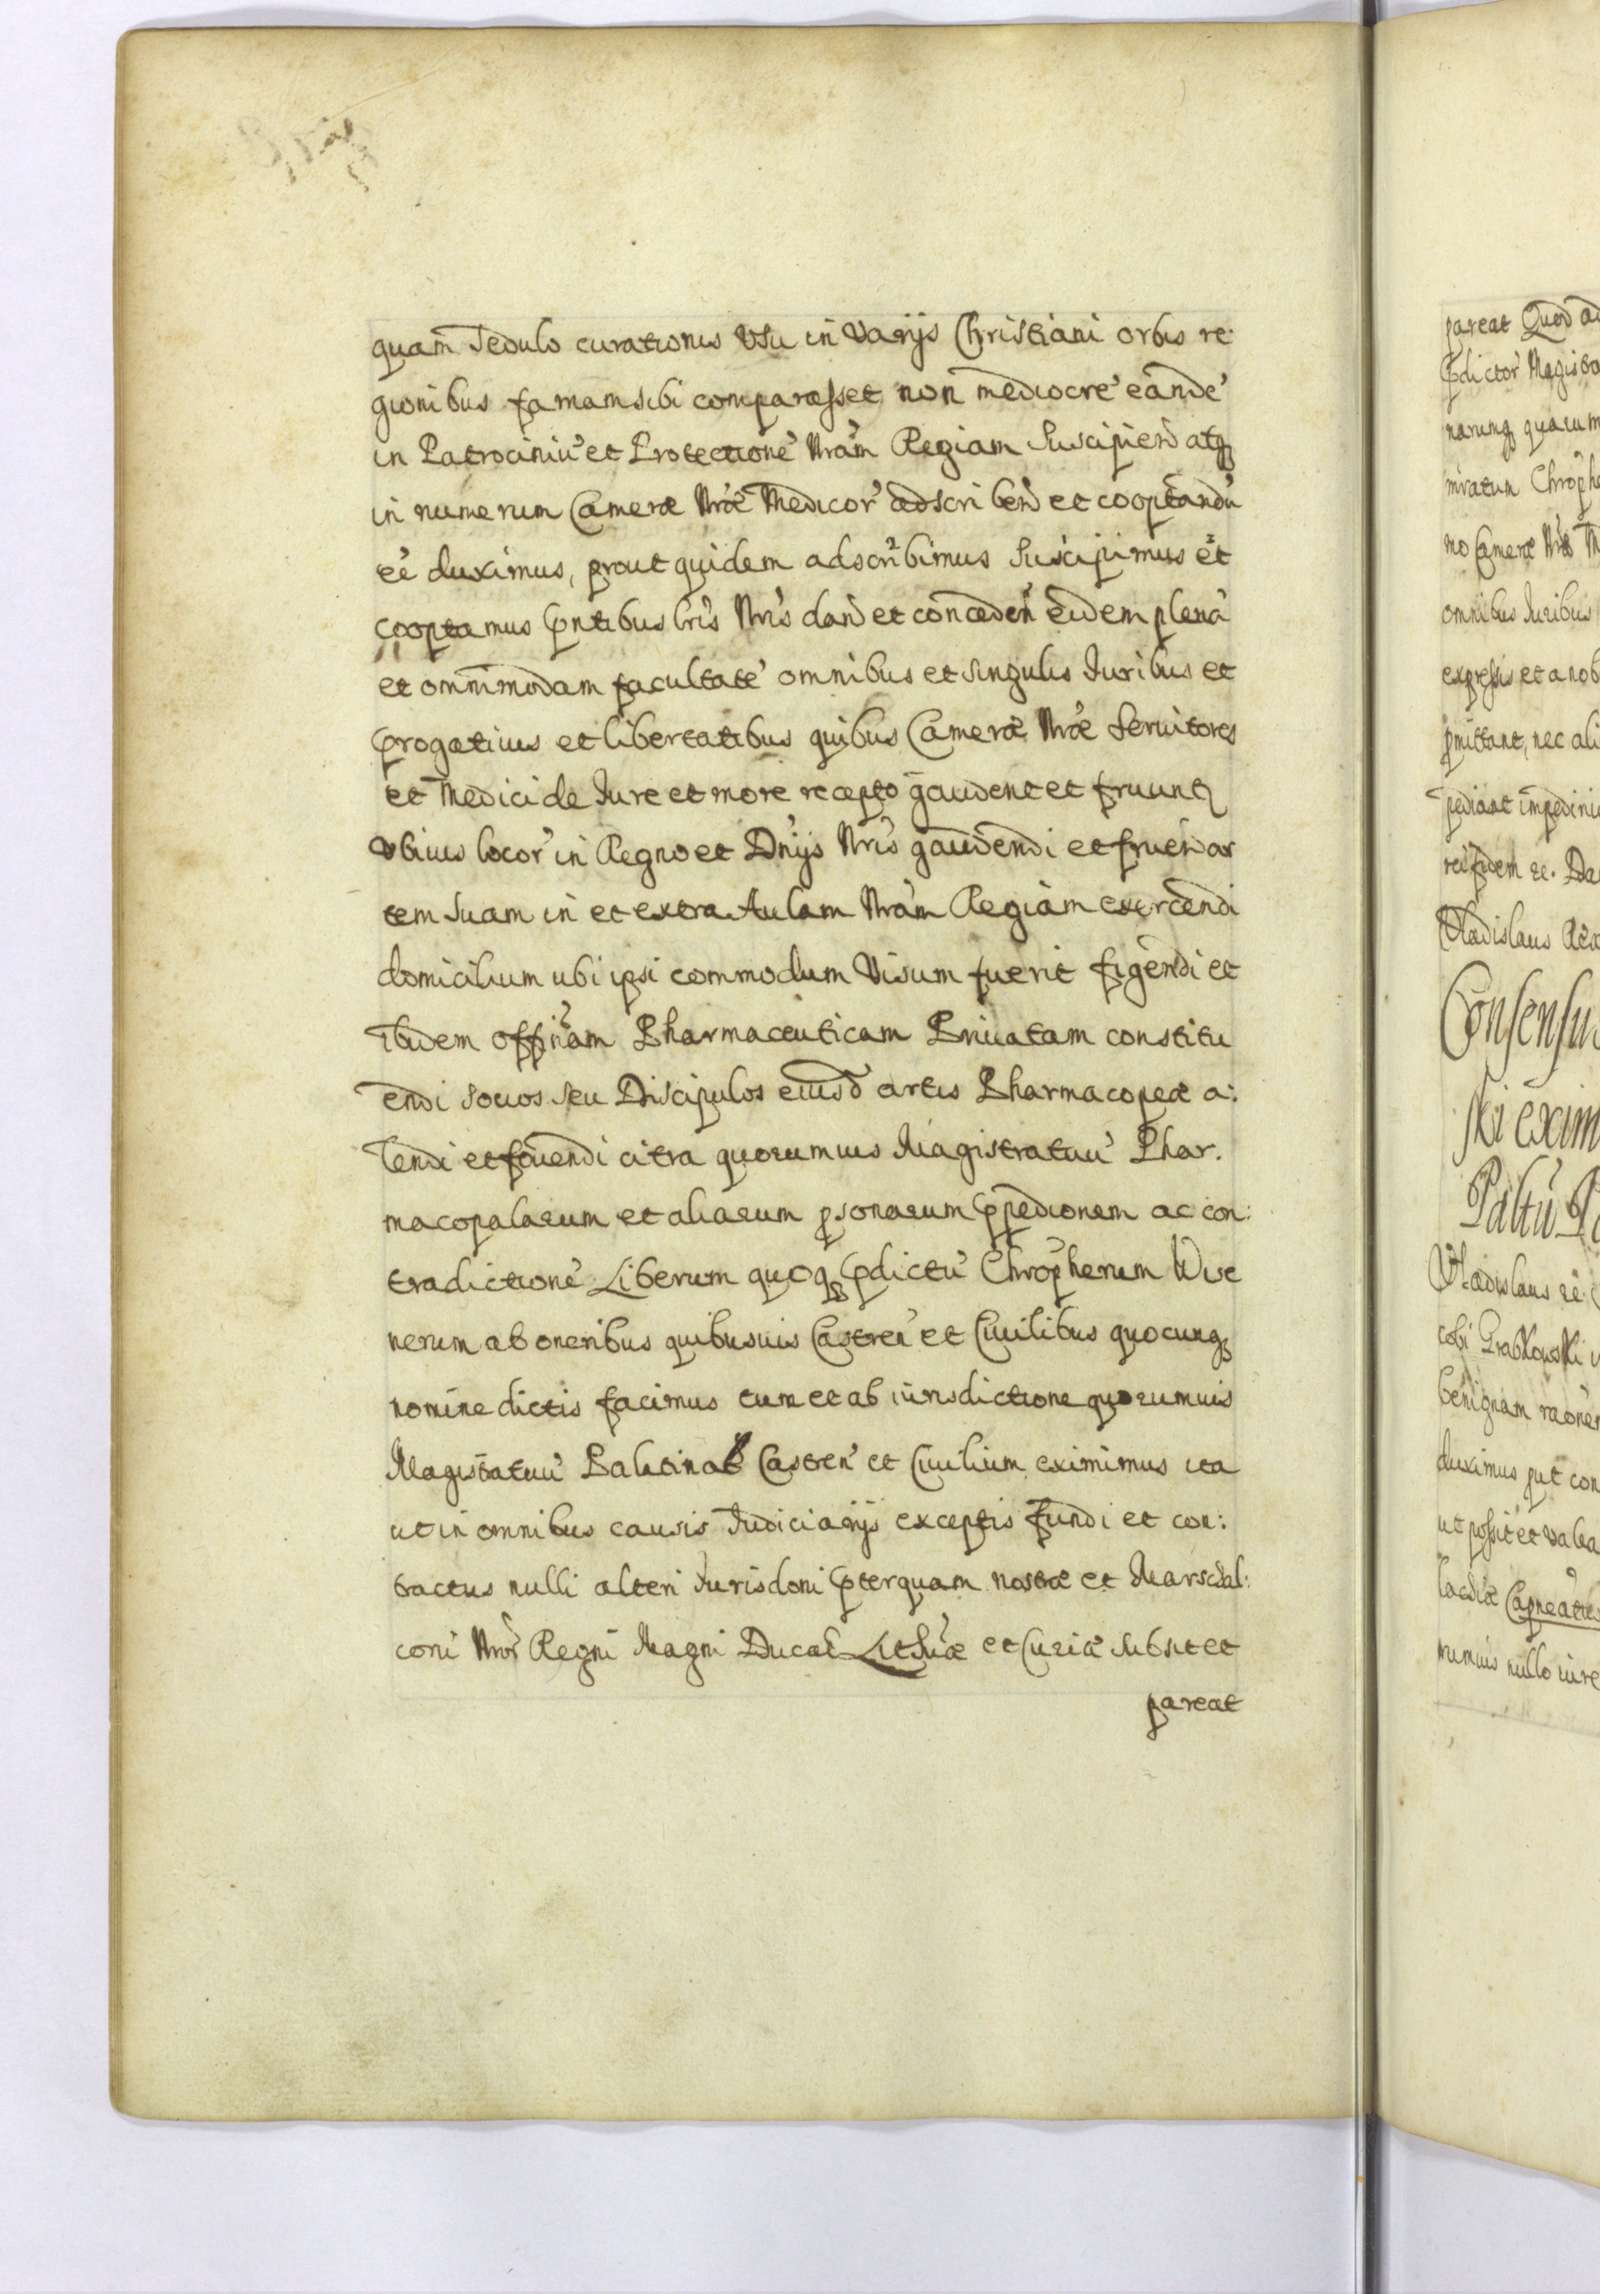 quam sedulo curationis usu in Varijs Christiani orbis re:
gionibus famam sibi comparasset non mediocrē eandē
in Patrociniū et Protectionē Nram Regiam Suscipiend atq
in numerum Camerae Nrae Medicor adscribend et cooptandū
eē duximus, prout quidem adscribimus Suscipimus et
cooptamus pntibus lris Nris dand et conceden eidem plenā
et omnimodam facultatē omnibus et singulis Juribus et
progativis et libertatibus quibus Camerae Nrae Servitores
et Medici de Jure et more recepto gaudent et fruunt
ubivis locor in Regno et Dnijs Nris gaudendi et fruend ar
tem suam in et extra Aulam Nram Regiam exercendi
domicilium ubi ipsi commodum Visum fuerit figendi et
ibidem offinam Pharmaceuticam Privatam constitu
endi socios seu Discipulos eiusd artis Pharmacopeae a:
lendi et fovendi citra quorumvis Magistratuū Phar:
macopalarum et aliarum psonarum ppedionem ac con:
tradictionē Liberum quoq pdictū Chropherum Wise
nerum ab oneribus quibusvis Castren et Civilibus quocunq
nomine dictis facimus tum et ab iurisdictione quorumvis
Magistatuū Palatinat Castren et Civilium eximimus ita
ut in omnibus causis Judiciarijs exceptis fundi et con:
tractus nulli alteri Jurisdoni pterquam nostrae et Marschal:
coni Nror Regni Magni Ducat Lithuae et Curiae subsit et
pareat
pareat Quod
pdictor
narumq
mratum
mo Camerae Nrae
omnibus Juribus
expressis et a nob
pmittant, nec ali
pediant
Vladislaus Rex
Consensus
ski exim
Vladislaus
cobi Grabkowski
benignam
duximus put con
ut possit et
Capneatus
rumvis nullo iure